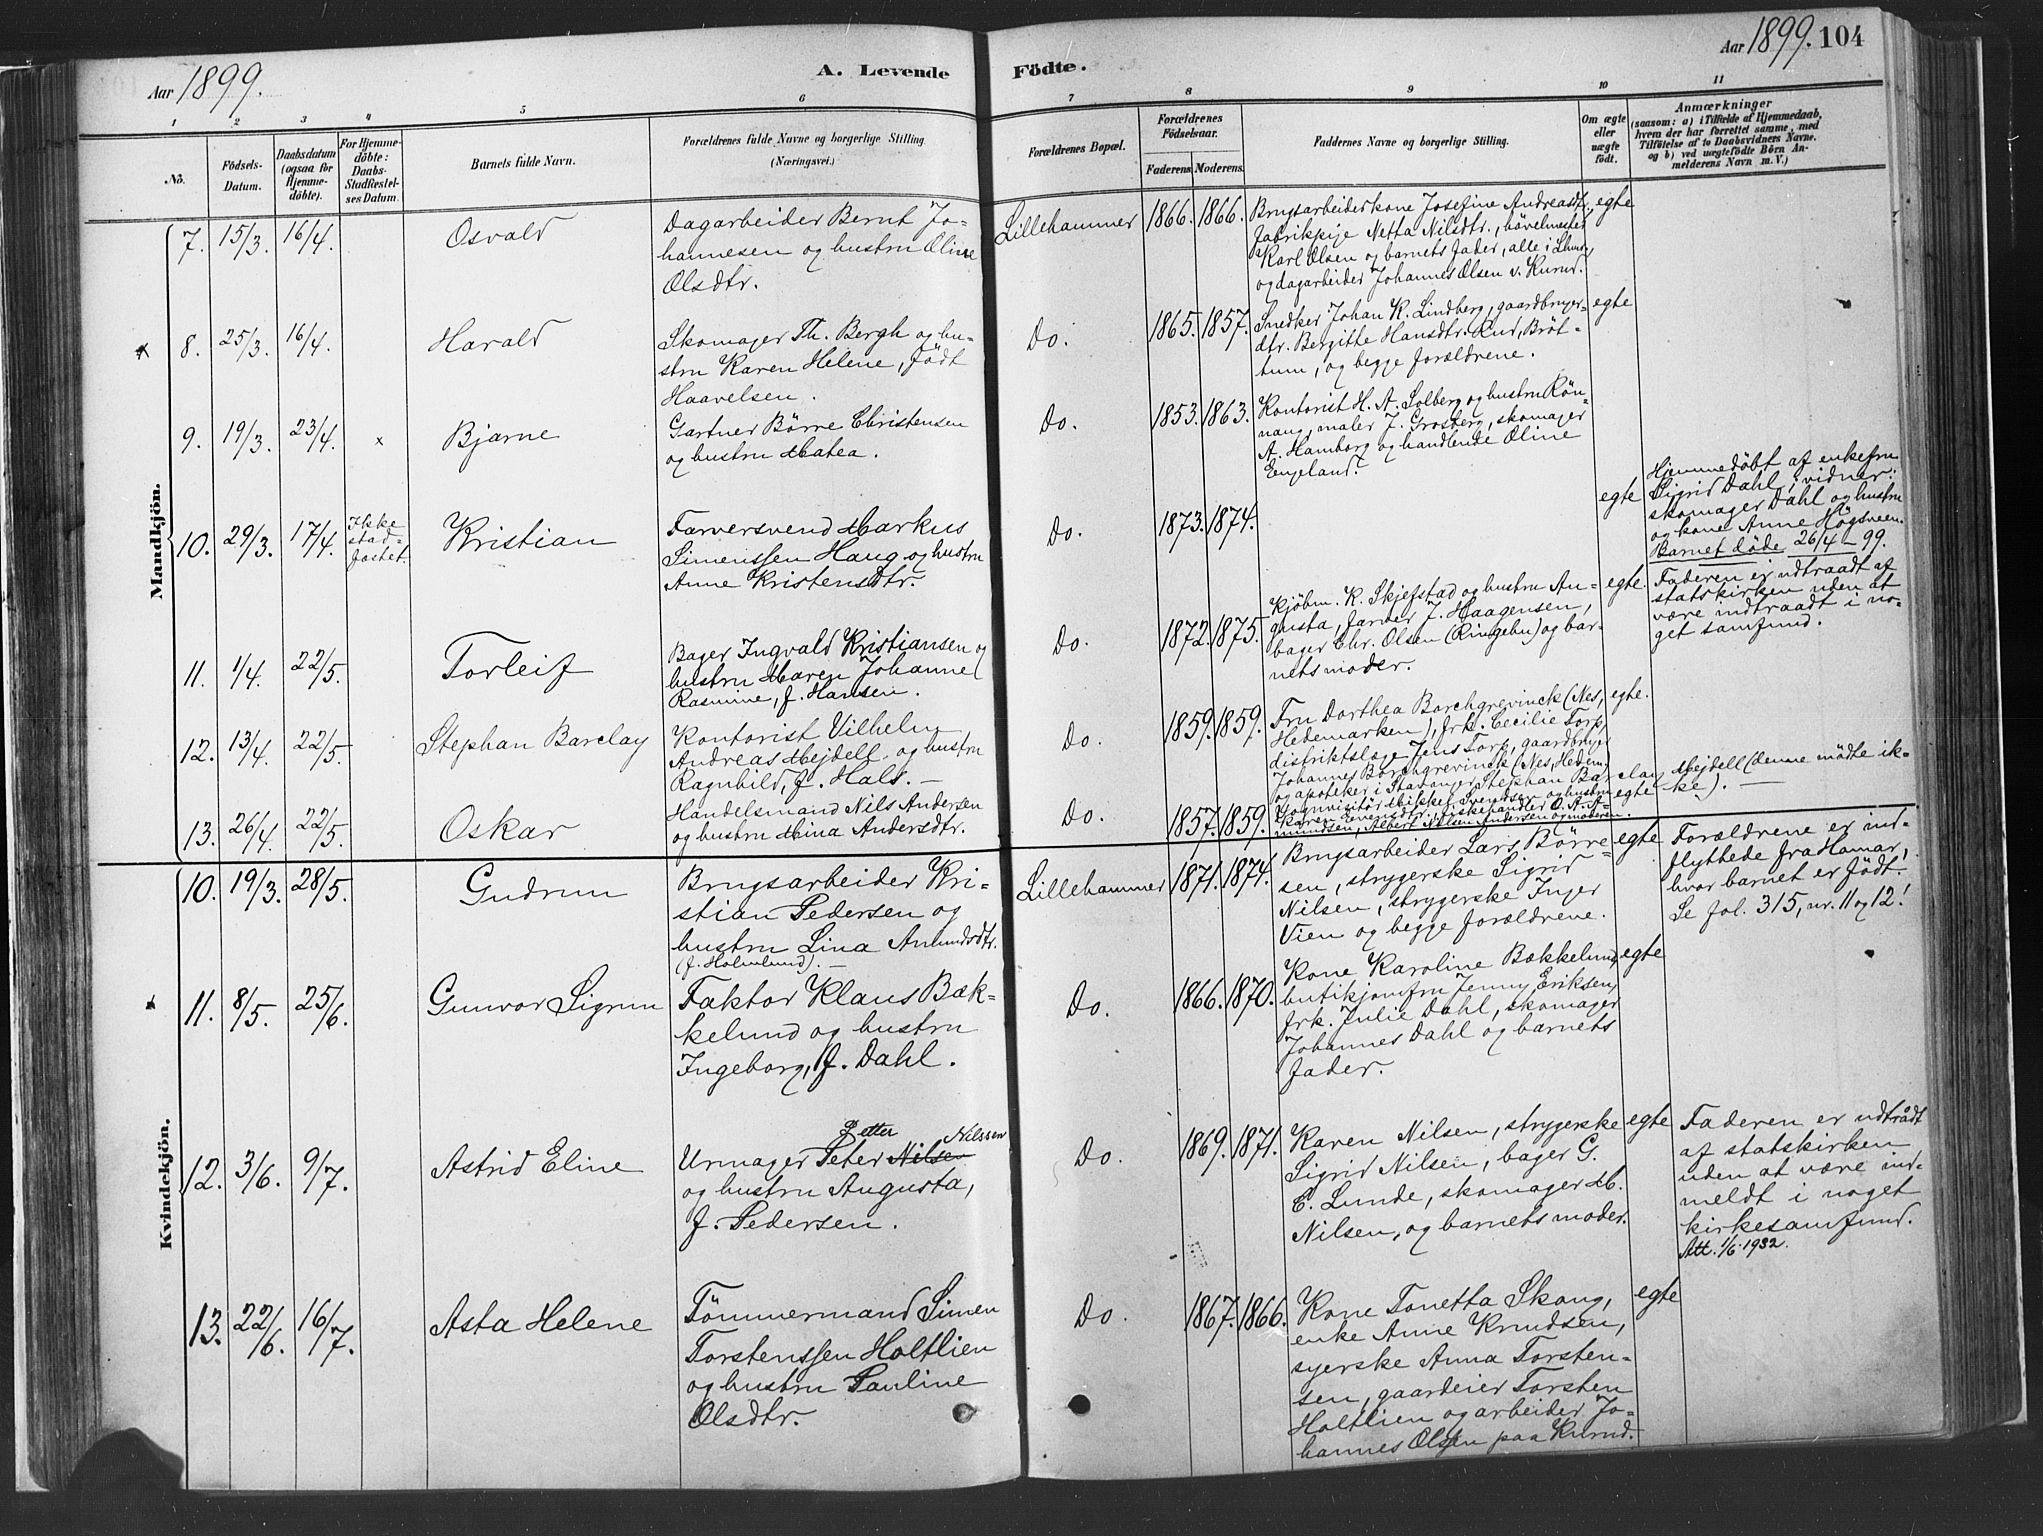 Aar 1899.
A. Levende
Födte.
Aar 1899. 104
1 2 3 4 5 6 7 8 9 10 11
No.
Födsels-
Datum.
Daabsdatum
(ogsaa for
Hjemme-
döbte).
For Hjemme-
döbte:
Daabs-
Stadfæstel-
ses Datum.
Barnets fulde Navn.
Forældrenes fulde Navne og borgerlige Stilling
(Næringsvei.)
Forældrenes Bopæl.
Forældrenes
Födselsaar.
Faderens. Moderens.
Faddernes Navne og borgerlige Stilling.
Om ægte
eller
uægte
födt.
Anmærkninger
(saasom: a) i Tilfælde af Hjemmedaab,
hvem der har forrettet samme, med
Tilföielse af to Daabsvidners Navne,
og b) ved uægtefödte Börn An-
melderens Navn m. V.)
Mandkjön.
7. 15/3. 16/4. Osvald
Dagarbeider Bernt Jo-
hannesen og hustru Oline
Olsdtr.
Lillehammer 1866. 1866.
Brugsarbeiderkone Josefine Andreasdtr,
fabrikpige Netta Nilsdtr., hövelmester
Karl Olsen og barnets fader, alle i Lhmr,
og dagarbeider Johannes Olsen v. Kurud.
egte
8. 25/3. 16/4. Harald
Skomager Th. Bergh og hu-
stru Karen Helene, födt
Haavelsen.
Do. 1865. 1857.
Snedker Johan K. Lindberg, gaardbruger-
dtr. Bergitte Hansdtr. Rud, Bröt-
tum, og begge forældrene.
egte
9. 19/3. 23/4. x Bjarne
Gartner Börre Christensen
og hustru Mathea.
Do. 1853. 1863.
Kontorist H. A. Solberg og hustru Rön-
naug, maler J. Grosberg, skomager
A. Hamborg og handlende Oline
Engeland.
10. 29/3. 17/4. Ikke
stad-
fæstet.
Kristian
Farversvend Markus
Simenssen Haug og hustru
Anne Kristensdtr.
Do. 1873. 1874.
egte
Hjemmedöbt af enkefru
Sigrid Dahl, vidner:
skomager Dahl og hustru
og kone Anne Högsveen.
Barnet döde 26/4 - 99.
11. 1/4. 22/5. Torleif
Bager Ingvald Kristiansen og
hustru Maren Johanne
Rasmine, f. Hansen.
Do. 1872. 1875.
Kjöbm. K. Skjefstad og hustru Au-
gusta, farver J. Haagensen,
bager Chr. Olsen (Ringebu) og bar-
nets moder.
egte.
Faderen er udtraadt af
statskirken uden at
være indtraadt i no-
get samfund.
12. 13/4. 22/5. Stephan Barclay
Kontorist Vilhelm
Andreas Mejdell og hustru
Ragnhild, f. Hals. —
Do. 1859. 1859.
Fru Dorthea Borchgrevinck (Nes,
Hedemarken), frk. Cecilie Torp,
distriktslæge Jens Torp, gaardbruger
Johannes Borchgrevinck (Nes, Hedem.)
og apoteker i Stavanger Stephan Barclay
egte.
Mejdell (denne mödte ik-
ke). —
13. 26/4. 22/5. Oskar
Handelsmand Nils Andersen
og hustru Mina Andersdtr.
Do. 1857. 1859.
Vognvisitör Mikkel Svendsen og hustru
Karen Evensdtr., fiskehandler O. A. A-
mundsen, Albert Nilsen Andersen og moderen.
egte
Kvindekjön.
10. 19/3. 28/5. Gudrun
Brugsarbeider Kri-
stian Pedersen og
hustru Lina Amundsdtr.
(f. Holmlund). —
Lillehammer 1871. 1874.
Brugsarbeider Lars Börre-
sen, strygerske Sigrid
Nilsen, strygerske Inger
Vien og begge forældrene.
egte
Forældrene er ind-
flyttede fra Hamar,
hvor barnet er födt.
Se fol. 315, nr. 11 og 12!
11. 8/5. 25/6. Gunvor Sigrun
Faktor Klaus Bæk-
kelund og hustru
Ingeborg, f. Dahl.
Do. 1866. 1870.
Kone Karoline Bækkelund,
butikjomfru Jenny Eriksen,
frk. Julie Dahl, skomager
Johannes Dahl og barnets
fader.
egte
12. 3/6. 9/7. Astrid Eline
Petter Nilssen
Urmager Peter Nilsen
og hustru Augusta,
f. Pedersen.
Do. 1869. 1871.
Karen Nilsen, strygerske
Sigrid Nilsen, bager G.
E. Lunde, skomager M.
Nilsen, og barnets moder.
egte
Faderen er udtrådt
af statskirken
uden at være ind-
meldt i noget
kirkesamfund.
Att. 1/6. 1932.
13. 22/6. 16/7. Asta Helene
Tömmermand Simen
Torstenssen Holtlien
og hustru Pauline
Olsdtr.
Do. 1867. 1866.
Kone Tonetta Skaug,
enke Anne Knudsen,
syerske Anna Torsten-
sen, gaardeier Torsten
Holtlien og arbeider Jo-
hannes Olsen paa Kurud.
egte